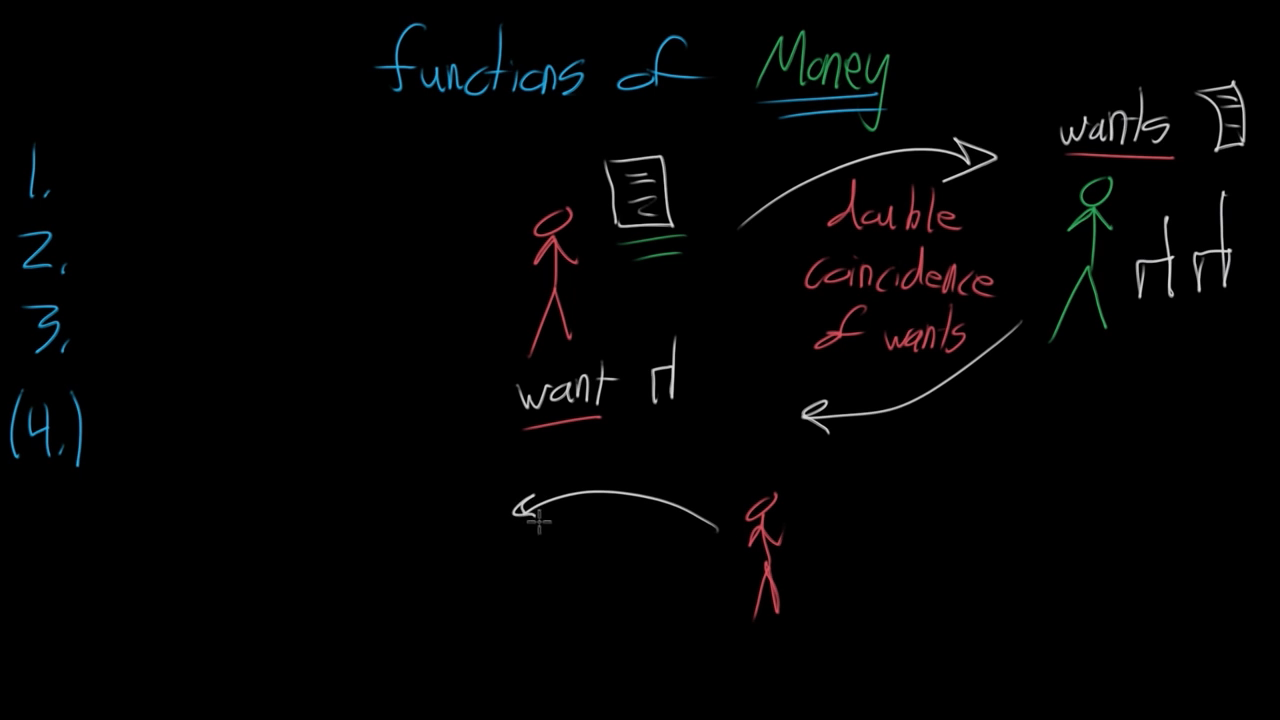 functions of Money
wants
1.
double
2.
coincidence
3.
of wants
want
(4.)